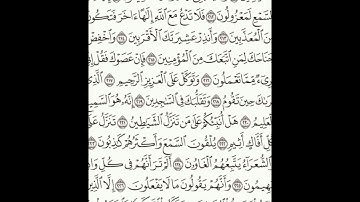 السَّمْعِ لَمَعْزُولُونَ ٢١٢ فَلَا تَدْعُ مَعَ ٱللَّهِ إِلَٰهًا ءَاخَرَ فَتَكُونَ
مِنَ ٱلْمُعَذَّبِينَ ٢١٣ وَأَنذِرْ عَشِيرَتَكَ ٱلْأَقْرَبِينَ ٢١٤ وَٱخْفِضْ
جَنَاحَكَ لِمَنِ ٱتَّبَعَكَ مِنَ ٱلْمُؤْمِنِينَ ٢١٥ فَإِنْ عَصَوْكَ فَقُلْ
بَرِىٓءٌ مِّمَّا تَعْمَلُونَ ٢١٦ وَتَوَكَّلْ عَلَى ٱلْعَزِيزِ ٱلرَّحِيمِ ٢١٧ ٱلَّذِى
يَرَىٰكَ حِينَ تَقُومُ ٢١٨ وَتَقَلُّبَكَ فِى ٱلسَّٰجِدِينَ ٢١٩ إِنَّهُۥ هُوَ ٱلسَّمِيعُ
ٱلْعَلِيمُ ٢٢٠ هَلْ أُنَبِّئُكُمْ عَلَىٰ مَن تَنَزَّلُ ٱلشَّيَٰطِينُ ٢٢١ تَنَزَّلُ عَلَىٰ
كُلِّ أَفَّاكٍ أَثِيمٍ ٢٢٢ يُلْقُونَ ٱلسَّمْعَ وَأَكْثَرُهُمْ كَٰذِبُونَ ٢٢٣
وَٱلشُّعَرَآءُ يَتَّبِعُهُمُ ٱلْغَاوُۥنَ ٢٢٤ أَلَمْ تَرَ أَنَّهُمْ فِى كُلِّ وَادٍ
يَهِيمُونَ ٢٢٥ وَأَنَّهُمْ يَقُولُونَ مَا لَا يَفْعَلُونَ ٢٢٦ إِلَّا ٱلَّذِينَ